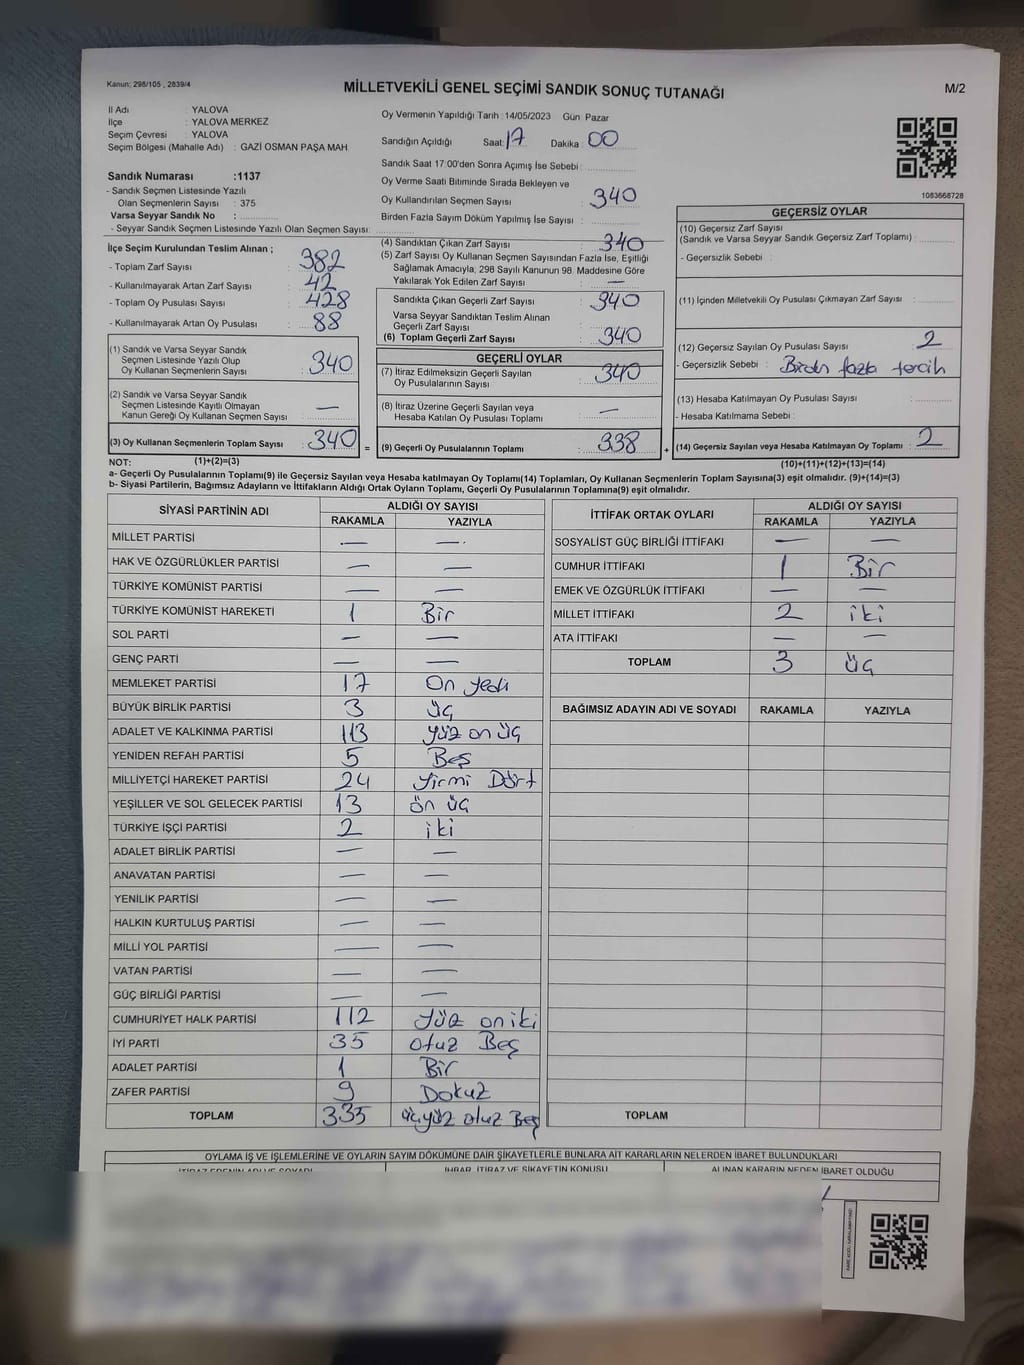 Kanun: 298/105 , 2839/4
MİLLETVEKİLİ GENEL SEÇİMİ SANDIK SONUÇ TUTANAĞI
M/2
İl Adı : YALOVA
İlçe : YALOVA MERKEZ
Seçim Çevresi : YALOVA
Seçim Bölgesi (Mahalle Adı) : GAZİ OSMAN PAŞA MAH
Oy Vermenin Yapıldığı Tarih : 14/05/2023 Gün Pazar
Sandığın Açıldığı Saat: 17 Dakika: 00
Sandık Saat 17:00'den Sonra Açımış İse Sebebi :
Oy Verme Saati Bitiminde Sırada Bekleyen ve
Oy Kullandırılan Seçmen Sayısı : 340
Birden Fazla Sayım Döküm Yapılmış İse Sayısı :
1083668728
Sandık Numarası :1137
- Sandık Seçmen Listesinde Yazılı
Olan Seçmenlerin Sayısı : 375
Varsa Seyyar Sandık No :
- Seyyar Sandık Seçmen Listesinde Yazılı Olan Seçmen Sayısı:
İlçe Seçim Kurulundan Teslim Alınan ;
- Toplam Zarf Sayısı : 382
- Kullanılmayarak Artan Zarf Sayısı : 42
- Toplam Oy Pusulası Sayısı : 428
- Kullanılmayarak Artan Oy Pusulası : 88
(1) Sandık ve Varsa Seyyar Sandık
Seçmen Listesinde Yazılı Olup
Oy Kullanan Seçmenlerin Sayısı : 340
(2) Sandık ve Varsa Seyyar Sandık
Seçmen Listesinde Kayıtlı Olmayan
Kanun Gereği Oy Kullanan Seçmen Sayısı : —
(3) Oy Kullanan Seçmenlerin Toplam Sayısı : 340 =
(1)+(2)=(3)
(4) Sandıktan Çıkan Zarf Sayısı : 340
(5) Zarf Sayısı Oy Kullanan Seçmen Sayısından Fazla İse, Eşitliği
Sağlamak Amacıyla, 298 Sayılı Kanunun 98. Maddesine Göre
Yakılarak Yok Edilen Zarf Sayısı : —
Sandıkta Çıkan Geçerli Zarf Sayısı : 340
Varsa Seyyar Sandıktan Teslim Alınan
Geçerli Zarf Sayısı :
(6) Toplam Geçerli Zarf Sayısı : 340
GEÇERLİ OYLAR
(7) İtiraz Edilmeksizin Geçerli Sayılan
Oy Pusulalarının Sayısı : 340
(8) İtiraz Üzerine Geçerli Sayılan veya
Hesaba Katılan Oy Pusulası Toplamı : —
(9) Geçerli Oy Pusulalarının Toplamı : 338 +
GEÇERSİZ OYLAR
(10) Geçersiz Zarf Sayısı
(Sandık ve Varsa Seyyar Sandık Geçersiz Zarf Toplamı) :
- Geçersizlik Sebebi :
(11) İçinden Milletvekili Oy Pusulası Çıkmayan Zarf Sayısı :
(12) Geçersiz Sayılan Oy Pusulası Sayısı : 2
- Geçersizlik Sebebi : Birden fazla tercih
(13) Hesaba Katılmayan Oy Pusulası Sayısı :
- Hesaba Katılmama Sebebi :
(14) Geçersiz Sayılan veya Hesaba Katılmayan Oy Toplamı : 2
(10)+(11)+(12)+(13)=(14)
NOT:
a- Geçerli Oy Pusulalarının Toplamı(9) ile Geçersiz Sayılan veya Hesaba katılmayan Oy Toplamı(14) Toplamları, Oy Kullanan Seçmenlerin Toplam Sayısına(3) eşit olmalıdır. (9)+(14)=(3)
b- Siyasi Partilerin, Bağımsız Adayların ve İttifakların Aldığı Ortak Oyların Toplamı, Geçerli Oy Pusulalarının Toplamına(9) eşit olmalıdır.
SİYASİ PARTİNİN ADI ALDIĞI OY SAYISI
RAKAMLA YAZIYLA
MİLLET PARTİSİ — —
HAK VE ÖZGÜRLÜKLER PARTİSİ — —
TÜRKİYE KOMÜNİST PARTİSİ — —
TÜRKİYE KOMÜNİST HAREKETİ 1 Bir
SOL PARTİ — —
GENÇ PARTİ — —
MEMLEKET PARTİSİ 17 On yedi
BÜYÜK BİRLİK PARTİSİ 3 üç
ADALET VE KALKINMA PARTİSİ 113 yüz on üç
YENİDEN REFAH PARTİSİ 5 Beş
MİLLİYETÇİ HAREKET PARTİSİ 24 yirmi Dört
YEŞİLLER VE SOL GELECEK PARTİSİ 13 ön üç
TÜRKİYE İŞÇİ PARTİSİ 2 iki
ADALET BİRLİK PARTİSİ — —
ANAVATAN PARTİSİ — —
YENİLİK PARTİSİ — —
HALKIN KURTULUŞ PARTİSİ — —
MİLLİ YOL PARTİSİ — —
VATAN PARTİSİ — —
GÜÇ BİRLİĞİ PARTİSİ — —
CUMHURİYET HALK PARTİSİ 112 yüz on iki
İYİ PARTİ 35 otuz Beş
ADALET PARTİSİ 1 Bir
ZAFER PARTİSİ 9 Dokuz
TOPLAM 335 üçyüz otuz Beş
İTTİFAK ORTAK OYLARI ALDIĞI OY SAYISI
RAKAMLA YAZIYLA
SOSYALİST GÜÇ BİRLİĞİ İTTİFAKI — —
CUMHUR İTTİFAKI 1 Bir
EMEK VE ÖZGÜRLÜK İTTİFAKI — —
MİLLET İTTİFAKI 2 iki
ATA İTTİFAKI — —
TOPLAM 3 üç
BAĞIMSIZ ADAYIN ADI VE SOYADI RAKAMLA YAZIYLA
TOPLAM
OYLAMA İŞ VE İŞLEMLERİNE VE OYLARIN SAYIM DÖKÜMÜNE DAİR ŞİKAYETLERLE BUNLARA AİT KARARLARIN NELERDEN İBARET BULUNDUKLARI
İTİRAZ EDENİN ADI VE SOYADI İHBAR, İTİRAZ VE ŞİKAYETİN KONUSU ALINAN KARARIN NEDEN İBARET OLDUĞU